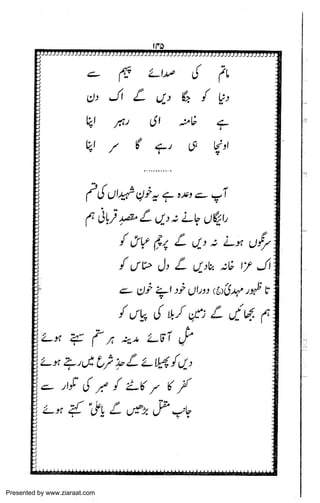 ۱۴۵
ماتم کی صدائے پیہم سے
دنیا کو جگا دیں گے اک دن
ہے خامنہ ای رہبر اپنا
اونچا ہی رہے گا سر اپنا
............
آپ سے وعدہ ہے یہ خونِ شہیداں کی قسم
رائیگاں جانے نہ دیں گے مقصدِ قربانی ہم
سرنگوں ہونے نہ دیں گے پرچمِ عباسؑ کو
اک عزا خانہ بنا دیں گے دلِ حساس کو
تا ظہورِ مہدیؑ دوراں خود اپنے خون سے
ہم بجھائیں گے زمینِ کربلا کی پیاس کو
مثلِ آقائے مدینہ ہر ستم سہتے ہوئے
دیں کو پھیلائیں گے حدِ شرع میں رہتے ہوئے
کفر کا سر کاٹنے کو صبر کی تلوار سے
جانبِ مقتل بڑھیں گے یا علیؑ کہتے ہوئے
Presented by www.ziaraat.com